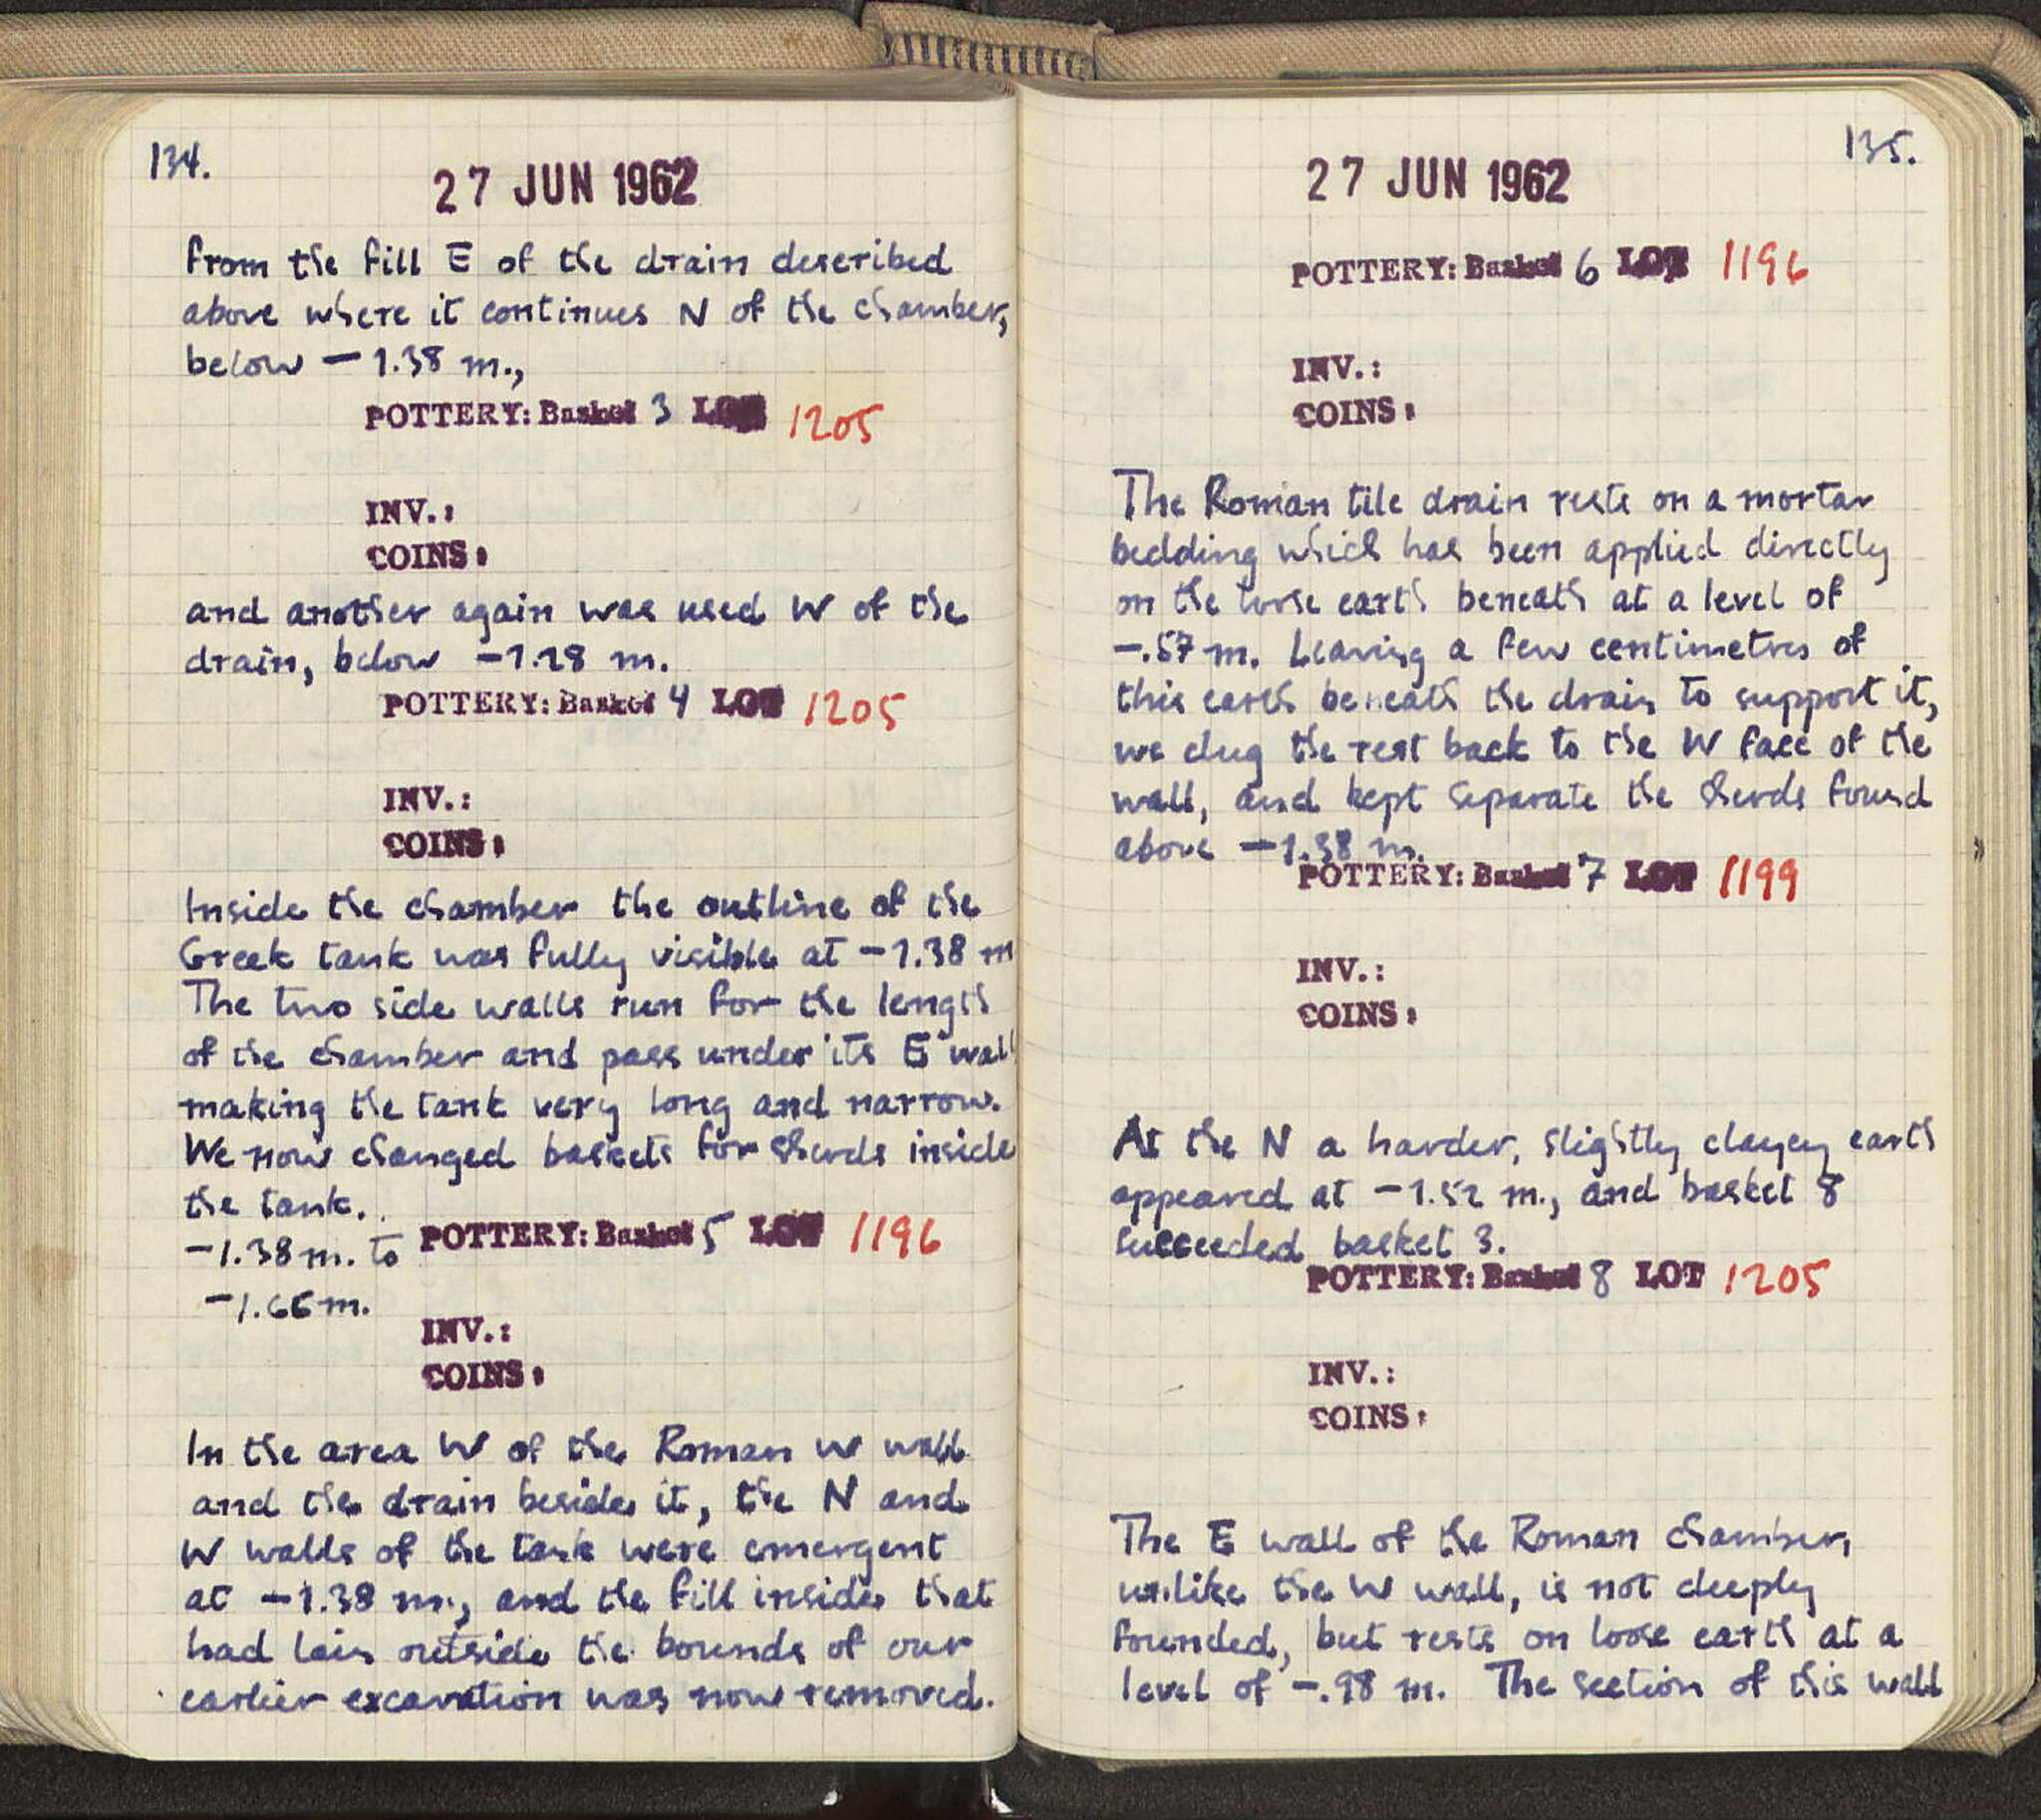 134.
27 JUN 1962
from the fill E of the drain described
above where it continues N of the chamber,
below -1.38 m.,
POTTERY: Basket 3 LOT 1205
INV.:
COINS:
and another again was used W of the
drain, below -1.28 m.
POTTERY: Basket 4 LOT 1205
INV.:
COINS:
Inside the chamber the outline of the
Greek tank was fully visible at -1.38 m
The two side walls run for the length
of the chamber and pass under its E wall
making the tank very long and narrow.
We now changed baskets for sherds inside
the tank.
-1.38 m. to POTTERY: Basket 5 LOT 1196
-1.66 m.
INV.:
COINS:
In the area W of the Roman W wall
and the drain beside it, the N and
W walls of the tank were emergent
at -1.38 m., and the fill inside that
had lain outside the bounds of our
earlier excavation was now removed.
135.
27 JUN 1962
POTTERY: Basket 6 LOT 1196
INV.:
COINS:
The Roman tile drain rests on a mortar
bedding which has been applied directly
on the loose earth beneath at a level of
-.57 m. Leaving a few centimetres of
this earth beneath the drain to support it,
we dug the rest back to the W face of the
wall, and kept separate the sherds found
above -1.38 m.
POTTERY: Basket 7 LOT 1199
INV.:
COINS:
At the N a harder, slightly clayey earth
appeared at -1.52 m., and basket 8
succeeded basket 3.
POTTERY: Basket 8 LOT 1205
INV.:
COINS:
The E wall of the Roman chamber,
unlike the W wall, is not deeply
founded, but rests on loose earth at a
level of -.98 m. The section of this wall